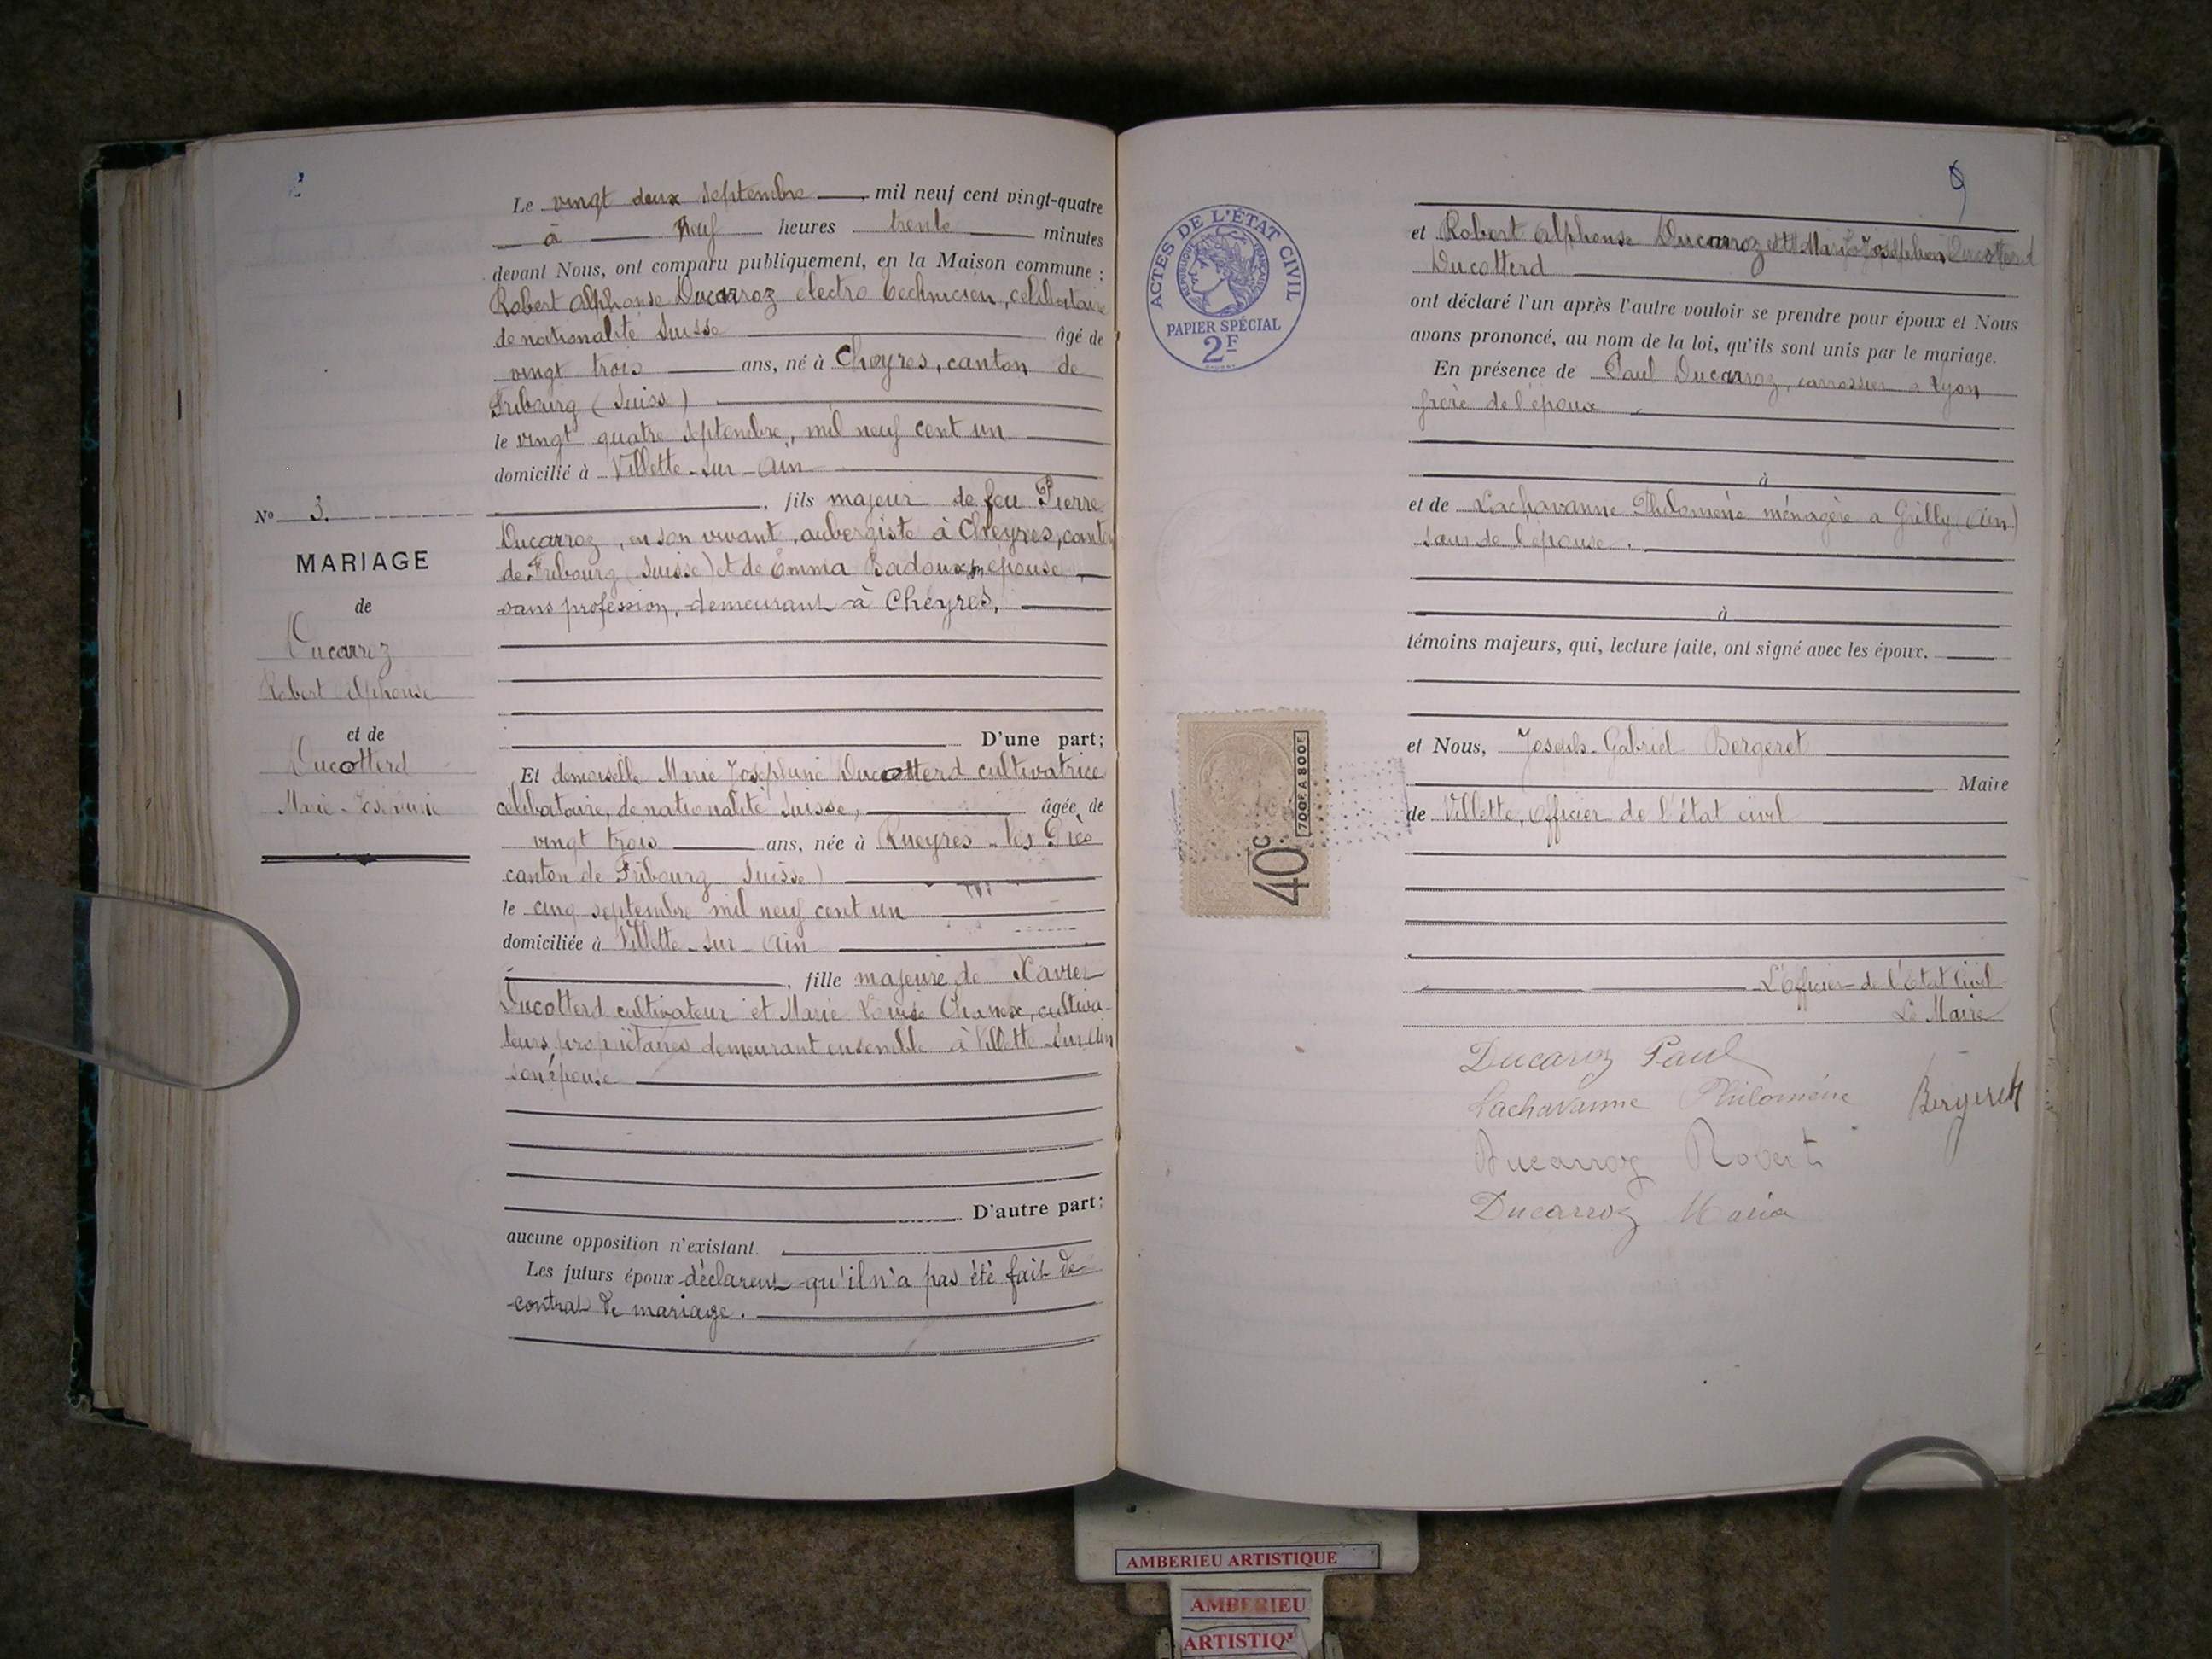 Le vingt deux septembre, mil neuf cent vingt-quatre
à neuf heures trente minutes
devant Nous, ont comparu publiquement, en la Maison commune :
Robert Alphonse Ducarroz électro technicien, célibataire
de nationalité Suisse âgé de
vingt trois ans, né à Cheyres, canton de
Fribourg (Suisse)
le vingt quatre septembre, mil neuf cent un
domicilié à Villette-sur-Ain
, fils majeur de feu Pierre
Ducarroz, en son vivant, aubergiste à Cheyres, canton
de Fribourg (Suisse) et de Emma Badoux, son épouse,
sans profession, demeurant à Cheyres,
D'une part;
Et demoiselle Marie Joséphine Ducotterd cultivatrice
célibataire, de nationalité Suisse, âgée de
vingt trois ans, née à Rueyres-les-Prés
canton de Fribourg Suisse)
le cinq septembre mil neuf cent un
domiciliée à Villette-sur-Ain
, fille majeure de Xavier
Ducotterd cultivateur et Marie Louise cultiva-
teurs propriétaires demeurant ensemble à Villette-sur-Ain
son épouse
D'autre part;
aucune opposition n'existant.
Les futurs époux déclarent qu'il n'a pas été fait de
contrat de mariage.
No 3.
MARIAGE
de
Ducarroz
Robert Alphonse
et de
Ducotterd
Marie-Joséphine
9
ACTES DE L'ÉTAT CIVIL
RÉPUBLIQUE FRANÇAISE
PAPIER SPÉCIAL
2F
et Robert Alphonse Ducarroz et Marie Joséphine Ducotterd
Ducotterd
ont déclaré l'un après l'autre vouloir se prendre pour époux et Nous
avons prononcé, au nom de la loi, qu'ils sont unis par le mariage.
En présence de Paul Ducarroz, carrossier à Lyon
frère de l'époux
à
et de Lachavanne Philomène ménagère à Grilly (Ain)
sœur de l'épouse.
à
témoins majeurs, qui, lecture faite, ont signé avec les époux.
et Nous, Joseph-Gabriel Bergeret
Maire
de Villette, officier de l'état civil
L'Officier de l'Etat Civil
Le Maire
Ducaroz Paul
Lachavanne Philomène
Bergeret
Ducarroz Robert
Ducarroz Maria
40c
700F. A 800F
AMBERIEU ARTISTIQUE
AMBERIEU
ARTISTIQ